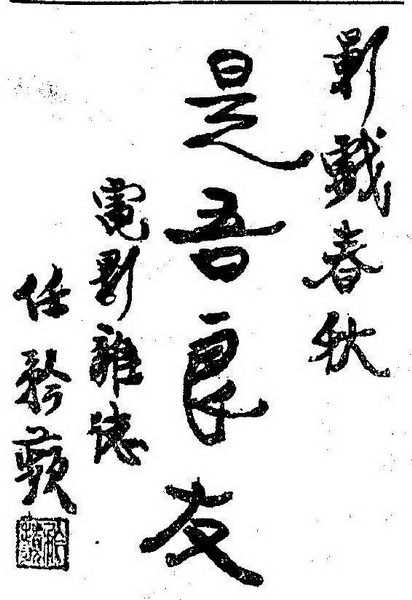 影戲春秋
是吾良友
電影雜志
任矜蘋